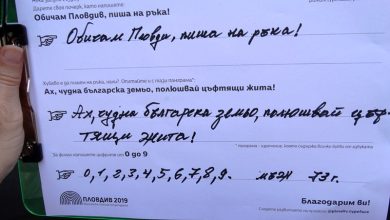 Дарете своя почерк, като напишете:
Обичам Пловдив, пиша на ръка!
Обичам Пловди, пиша на ръка!
Хубаво е да пишем на ръка, нали? Опитайте и с тази панграма*:
Ах, чудна българска земьо, полюшвай цъфтящи жита!
Ах, чудна българска земьо, полюшвай цъф-
тящи жита!
* панграма - изречение, което съдържа всички букви от азбуката
За финал напишете цифрите от 0 до 9
0, 1, 2, 3, 4, 5, 6, 7, 8, 9. мъж 73 г.
ПЛОВДИВ 2019
Благодарим ви!